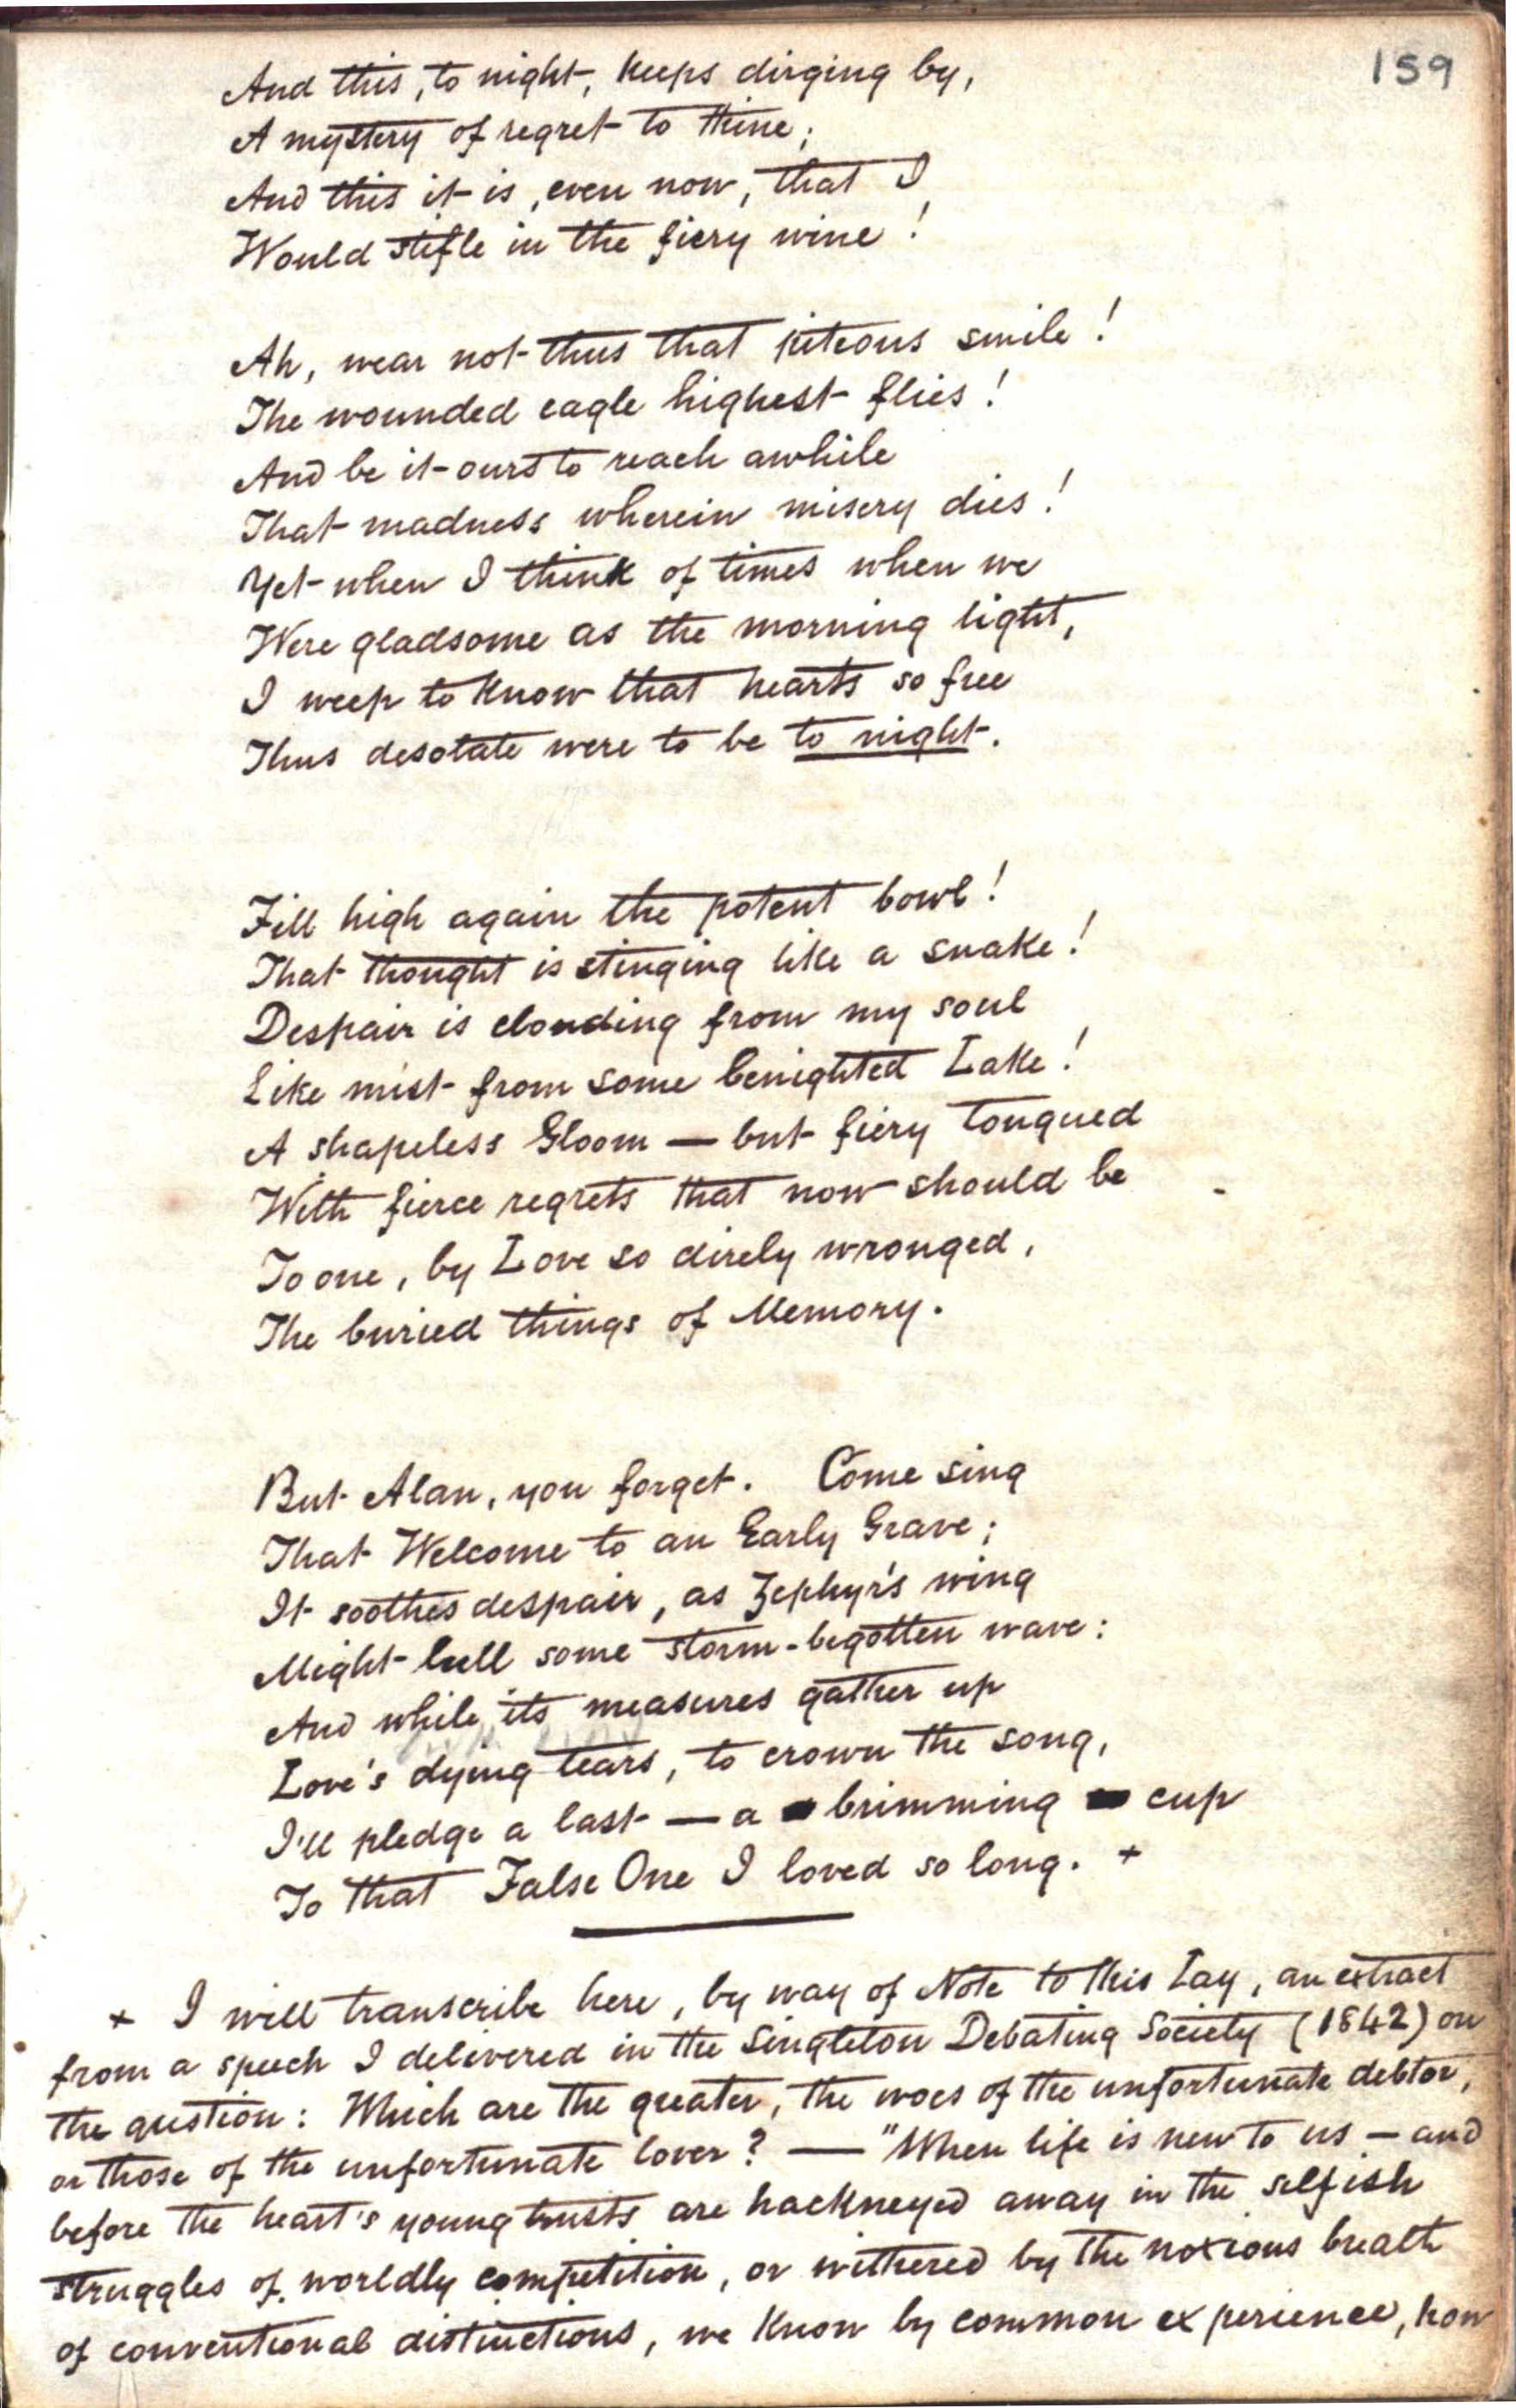 159
And this, to night, keeps dirging by,
A mystery of regret to thine;
And this it is, even now, that I
Would stifle in the fiery wine!
Ah, wear not thus that piteous smile!
The wounded eagle highest flies!
And be it ours to reach awhile
That madness wherein misery dies!
Yet when I think of times when we
Were gladsome as the morning light,
I weep to know that hearts so free
Thus desolate were to be to night.
Fill high again the potent bowl!
That thought is stinging like a snake!
Despair is clouding from my soul
Like mist from some benighted Lake!
A shapeless Gloom — but fiery tongued
With fierce regrets that now should be
To one, by Love so direly wronged,
The buried things of Memory.
But Alan, you forget. Come sing
That Welcome to an Early Grave;
It soothes despair, as Zephyr's wing
Might lull some storm-begotten wave:
And while its measures gather up
Love's dying tears, to crown the song,
I'll pledge a last — a brimming cup
To that False One I loved so long. +
+ I will transcribe here, by way of Note to this Lay, an extract
from a speech I delivered in the Singleton Debating Society (1842) on
the question: Which are the greater, the woes of the unfortunate debtor,
or those of the unfortunate lover? — "When life is new to us — and
before the heart's young trusts are hackneyed away in the selfish
struggles of worldly competition, or withered by the noxious breath
of conventional distinctions, we know by common experience, how